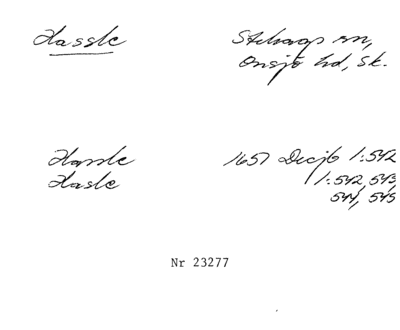 Hassle
Stehag sn,
Onsjö hd, Sk.
Hassle 1657 Decjb 1:542
Hasle 1:542, 543,
544, 545
Nr 23277